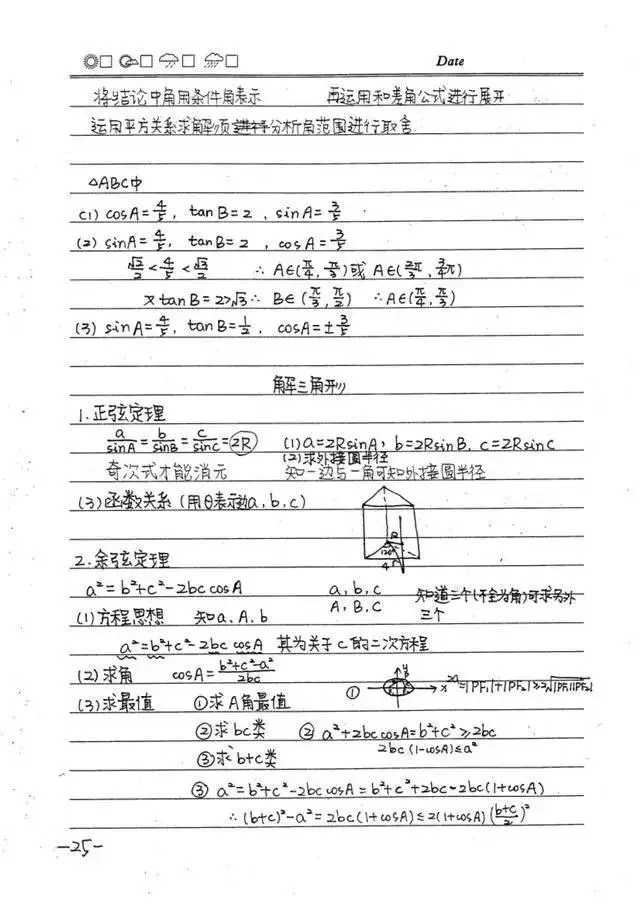 Date
将结论中角用条件角表示 再运用和差角公式进行展开
运用平方关系求解须分析角范围进行取舍
△ABC中
(1) cosA=4/5, tanB=2, sinA=3/5
(2) sinA=4/5, tanB=2, cosA=3/5
√2/2<4/5<√3/2 ∴A∈(π/4, π/3)或A∈(2π/3, 3/4π)
又tanB=2>√3∴ B∈(π/3, π/2) ∴A∈(π/4, π/3)
(3) sinA=4/5, tanB=1/2, cosA=±3/5
解三角形
1.正弦定理
a/sinA=b/sinB=c/sinC=2R (1)a=2RsinA, b=2RsinB, c=2RsinC
(2)求外接圆半径
奇次式才能消元 知一边与一角可知外接圆半径
(3)函数关系(用θ表示a,b,c)
R
120°
4
r
2.余弦定理
a²=b²+c²-2bc cosA a, b, c 知道三个(不全为角)可求另外
(1)方程思想 知a, A, b A, B, C 三个
a²=b²+c²-2bc cosA 其为关于c的二次方程
(2)求角 cosA=b²+c²-a²/2bc
(3)求最值 ①求A角最值 ① y x 2a=|PF₁|+|PF₂|≥2√|PF₁||PF₂|
②求bc类 ② a²+2bc cosA=b²+c²≥2bc
2bc(1-cosA)≤a²
③求b+c类
③ a²=b²+c²-2bc cosA=b²+c²+2bc-2bc(1+cosA)
∴(b+c)²-a²=2bc(1+cosA)≤2(1+cosA)(b+c/2)²
-25-